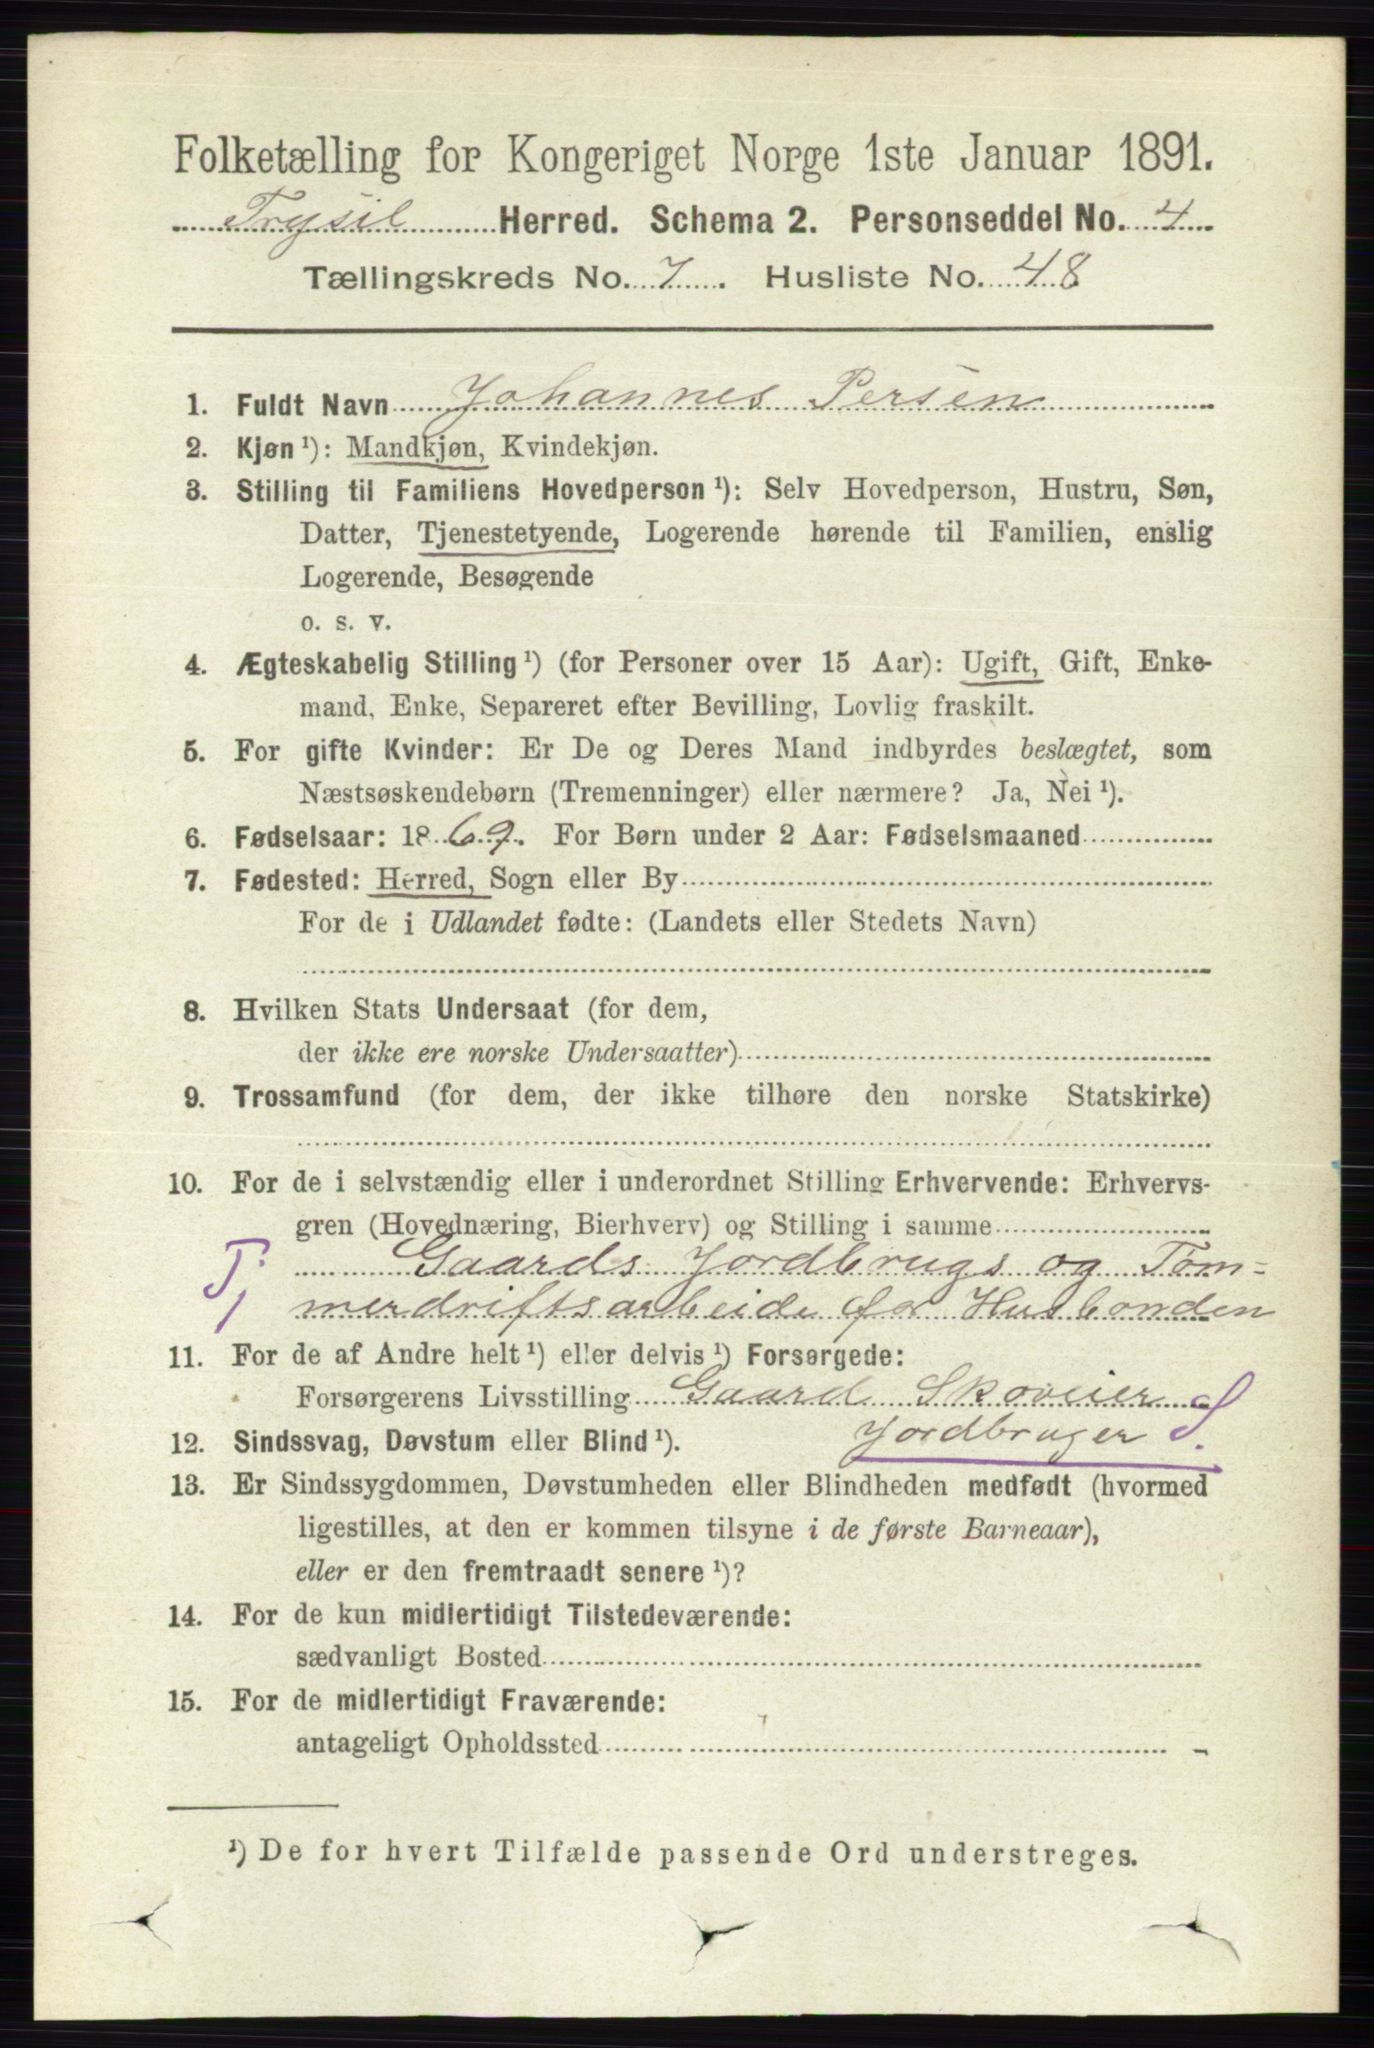 Folketælling for Kongeriget Norge 1ste Januar 1891.
Trysil Herred. Schema 2. Personseddel No. 4
Tællingskreds No. 7. Husliste No. 48
1. Fuldt Navn Johannes Persen
2. Kjøn ¹): Mandkjøn, Kvindekjøn.
3. Stilling til Familiens Hovedperson ¹): Selv Hovedperson, Hustru, Søn,
Datter, Tjenestetyende, Logerende hørende til Familien, enslig
Logerende, Besøgende
o. s. v.
4. Ægteskabelig Stilling ¹) (for Personer over 15 Aar): Ugift, Gift, Enke-
mand, Enke, Separeret efter Bevilling, Lovlig fraskilt.
5. For gifte Kvinder: Er De og Deres Mand indbyrdes beslægtet, som
Næstsøskendebørn (Tremenninger) eller nærmere? Ja, Nei ¹).
6. Fødselsaar: 1869. For Børn under 2 Aar: Fødselsmaaned
7. Fødested: Herred, Sogn eller By
For de i Udlandet fødte: (Landets eller Stedets Navn)
8. Hvilken Stats Undersaat (for dem,
der ikke ere norske Undersaatter)
9. Trossamfund (for dem, der ikke tilhøre den norske Statskirke)
10. For de i selvstændig eller i underordnet Stilling Erhvervende: Erhvervs-
gren (Hovednæring, Bierhverv) og Stilling i samme
Tj. Gaards Jordbrugs og Töm-
merdriftsarbeide for Husbonden
11. For de af Andre helt ¹) eller delvis ¹) Forsørgede:
Forsørgerens Livsstilling Gaard Skoveier S.
Jordbruger
12. Sindssvag, Døvstum eller Blind ¹).
13. Er Sindssygdommen, Døvstumheden eller Blindheden medfødt (hvormed
ligestilles, at den er kommen tilsyne i de første Barneaar),
eller er den fremtraadt senere ¹)?
14. For de kun midlertidigt Tilstedeværende:
sædvanligt Bosted
15. For de midlertidigt Fraværende:
antageligt Opholdssted
¹) De for hvert Tilfælde passende Ord understreges.